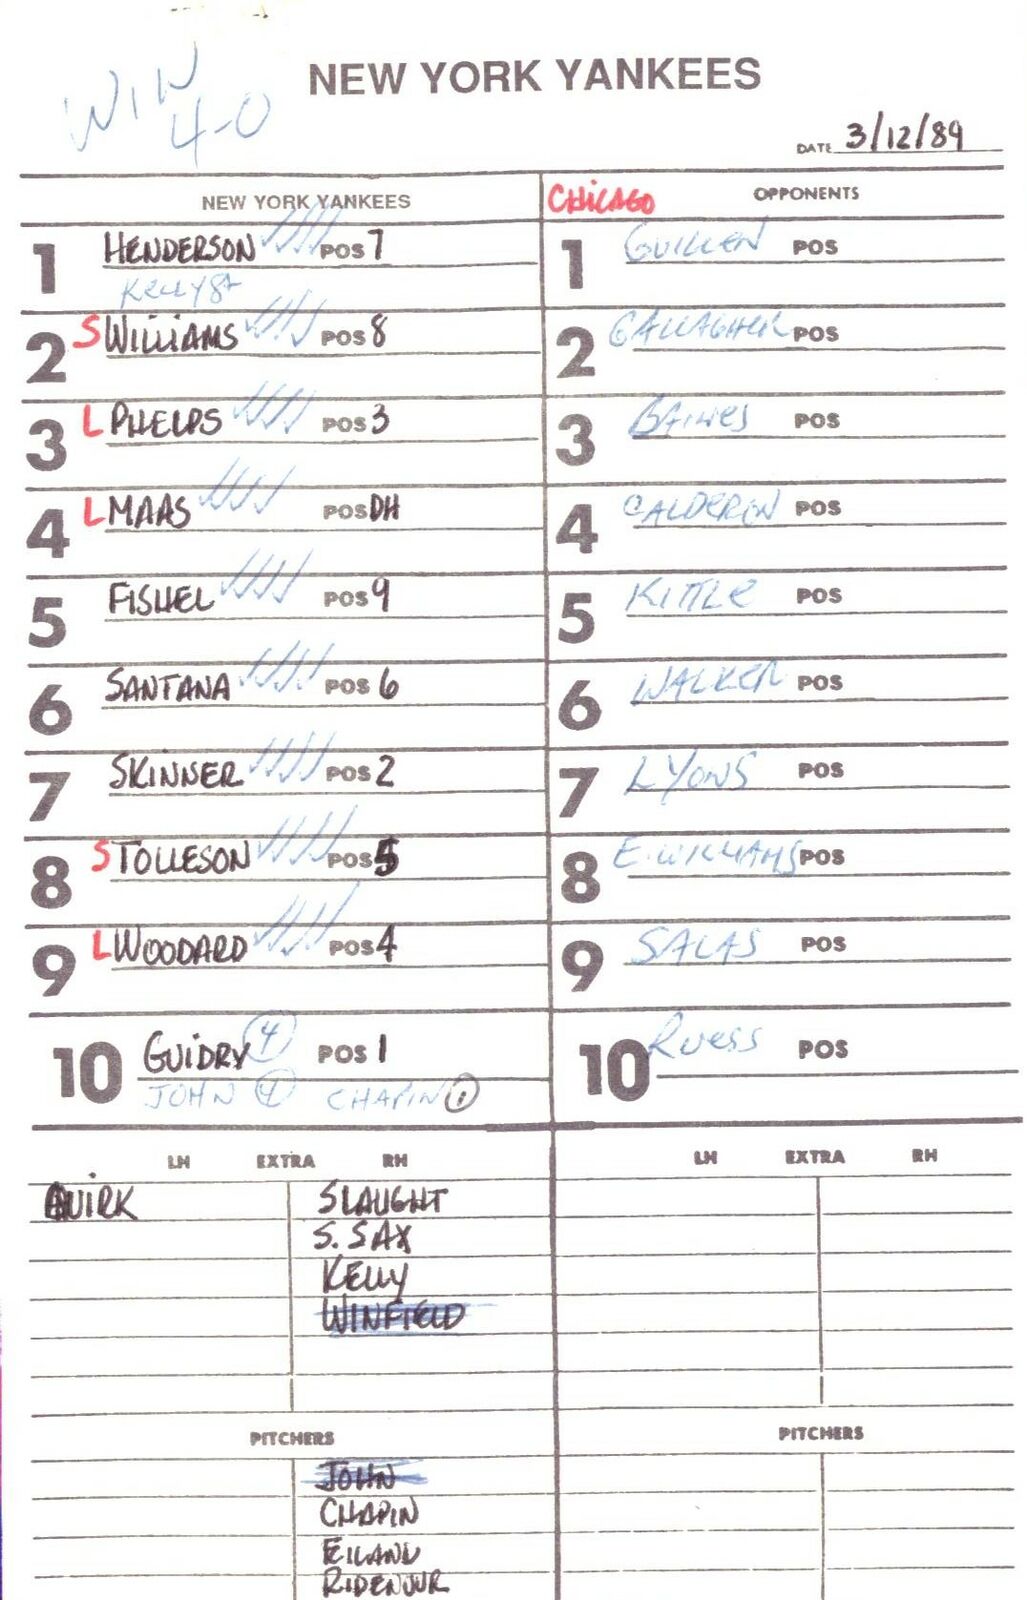 WIN
4-0
NEW YORK YANKEES
DATE 3/12/89
NEW YORK YANKEES
1 HENDERSON POS 7
KELLY 8
2 S WILLIAMS POS 8
3 L PHELPS POS 3
4 L MAAS POS DH
5 FISHEL POS 9
6 SANTANA POS 6
7 SKINNER POS 2
8 S TOLLESON POS 5
9 L WOODARD POS 4
10 GUIDRY 4 POS 1
JOHN 4 CHAPIN 1
LH EXTRA RH
QUIRK SLAUGHT
S. SAX
KELLY
WINFIELD
PITCHERS
JOHN
CHAPIN
EILAND
RIDENOUR
CHICAGO OPPONENTS
1 GUILLEN POS
2 GALLAGHER POS
3 BAINES POS
4 CALDERON POS
5 KITTLE POS
6 WALKER POS
7 LYONS POS
8 E. WILLIAMS POS
9 SALAS POS
10 RUESS POS
LH EXTRA RH
PITCHERS